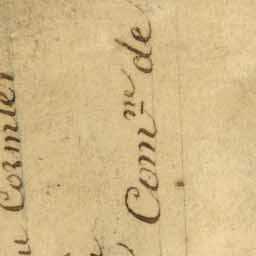 Cormier
Com.me de